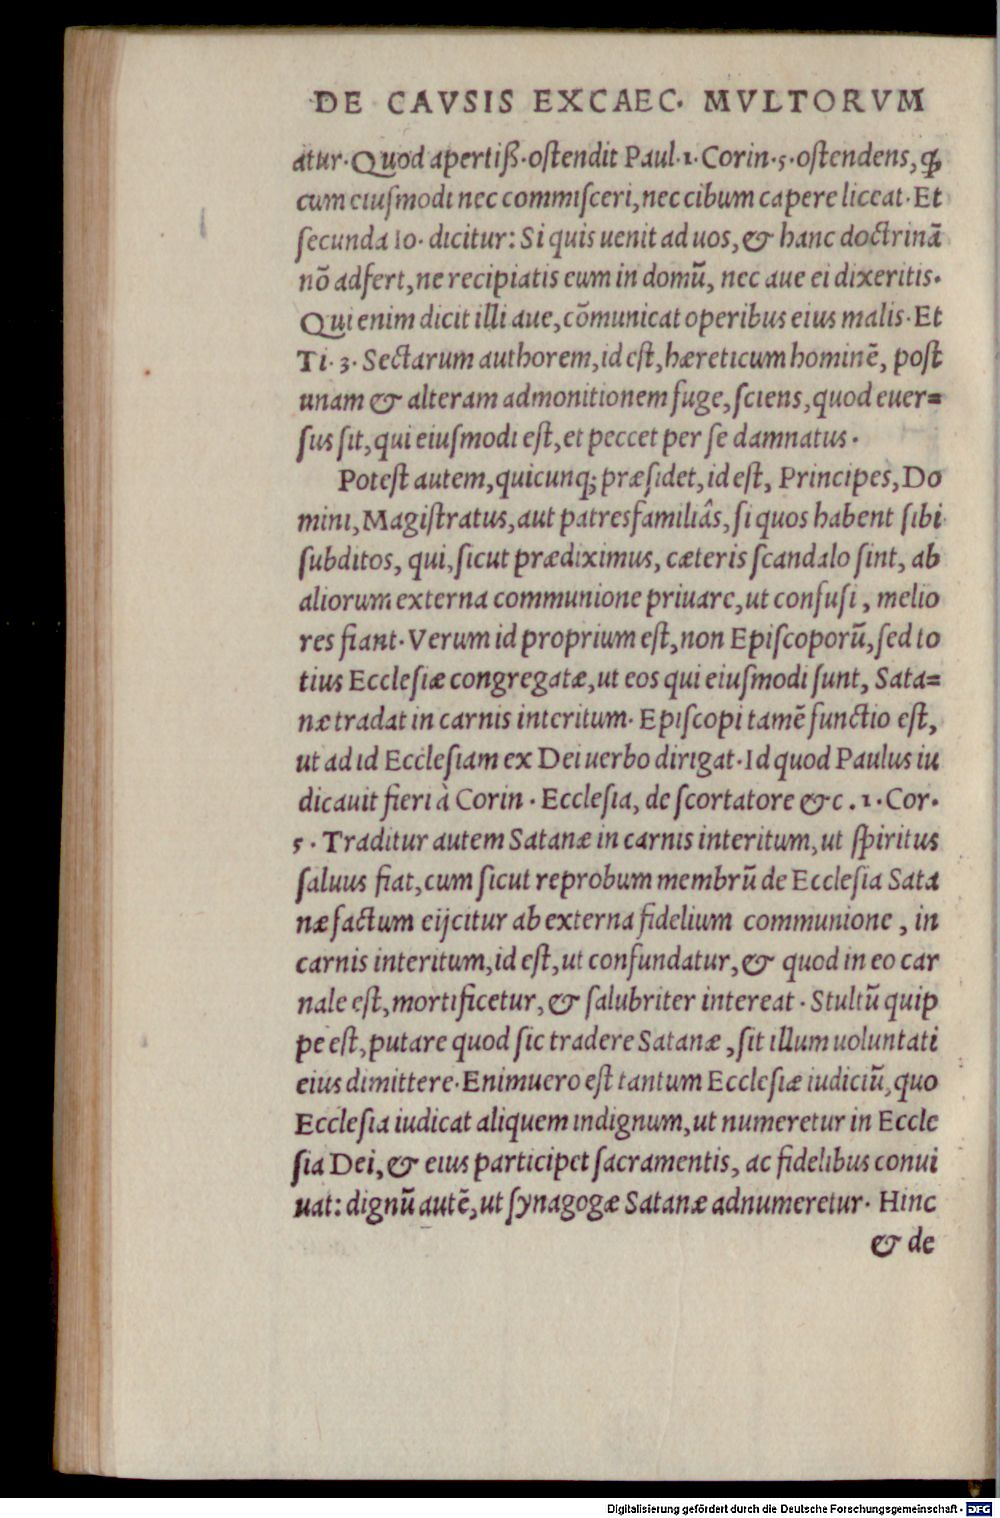 DE CAVSIS EXCAEC. MVLTORVM
atur. Quod apertiß. oſtendit Paul. 1. Corin. 5. oſtendens, ꝙ
cum eiuſmodi nec commiſceri, nec cibum capere liceat. Et
ſecunda Io. dicitur: Si quis uenit ad uos, & hanc doctrinā
nō adfert, ne recipiatis eum in domū, nec aue ei dixeritis.
Qui enim dicit illi aue, cōmunicat operibus eius malis. Et
Ti. 3. Sectarum authorem, id eſt, hæreticum hominē, poſt
unam & alteram admonitionem fuge, ſciens, quod euer=
ſus ſit, qui eiuſmodi eſt, et peccet per ſe damnatus.
Poteſt autem, quicunq; præſidet, id eſt, Principes, Do
mini, Magiſtratus, aut patresfamiliâs, ſi quos habent ſibi
ſubditos, qui, ſicut prædiximus, cæteris ſcandalo ſint, ab
aliorum externa communione priuare, ut confuſi, melio
res fiant. Verum id proprium eſt, non Epiſcoporū, ſed to
tius Eccleſiæ congregatæ, ut eos qui eiuſmodi ſunt, Sata=
næ tradat in carnis interitum. Epiſcopi tamē functio eſt,
ut ad id Eccleſiam ex Dei uerbo dirigat. Id quod Paulus iu
dicauit fieri à Corin. Eccleſia, de ſcortatore &c. 1. Cor.
5. Traditur autem Satanæ in carnis interitum, ut ſpiritus
ſaluus fiat, cum ſicut reprobum membrū de Eccleſia Sata
næ factum eijcitur ab externa fidelium communione, in
carnis interitum, id eſt, ut confundatur, & quod in eo car
nale eſt, mortificetur, & ſalubriter intereat. Stultū quip
pe eſt, putare quod ſic tradere Satanæ, ſit illum uoluntati
eius dimittere. Enimuero eſt tantum Eccleſiæ iudiciū, quo
Eccleſia iudicat aliquem indignum, ut numeretur in Eccle
ſia Dei, & eius participet ſacramentis, ac fidelibus conui
uat: dignū autē, ut ſynagogæ Satanæ adnumeretur. Hinc
& de
Digitalisierung gefördert durch die Deutsche Forschungsgemeinschaft - DFG